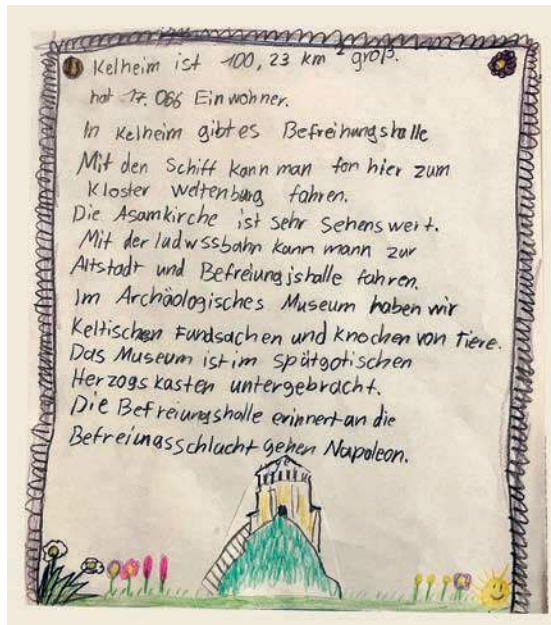 Kelheim ist 100,23 km² groß.
hat 17.066 Einwohner.
In Kelheim gibt es Befreihungshalle
Mit den Schiff kann man fon hier zum
Kloster weltenburg fahren.
Die Asamkirche ist sehr sehenswert.
Mit der ludwssbahn kann mann zur
Altstadt und Befreiungshalle fahren.
Im Archäologisches Museum haben wir
Keltischen Fundsachen und Knochen von Tiere.
Das Museum ist im spätgotischen
Herzogskasten untergebracht.
Die Befreiungshalle erinnert an die
Befreiungsschlacht gehen Napoleon.